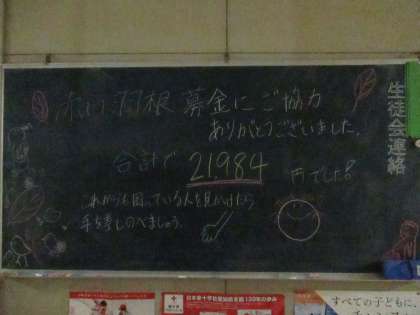 赤い羽根募金にご協力
ありがとうございました。
合計で 21,984 円でした!
これからも困っている人を見かけたら
手を差しのべましょう。
生徒会連絡
すべての子どもに、